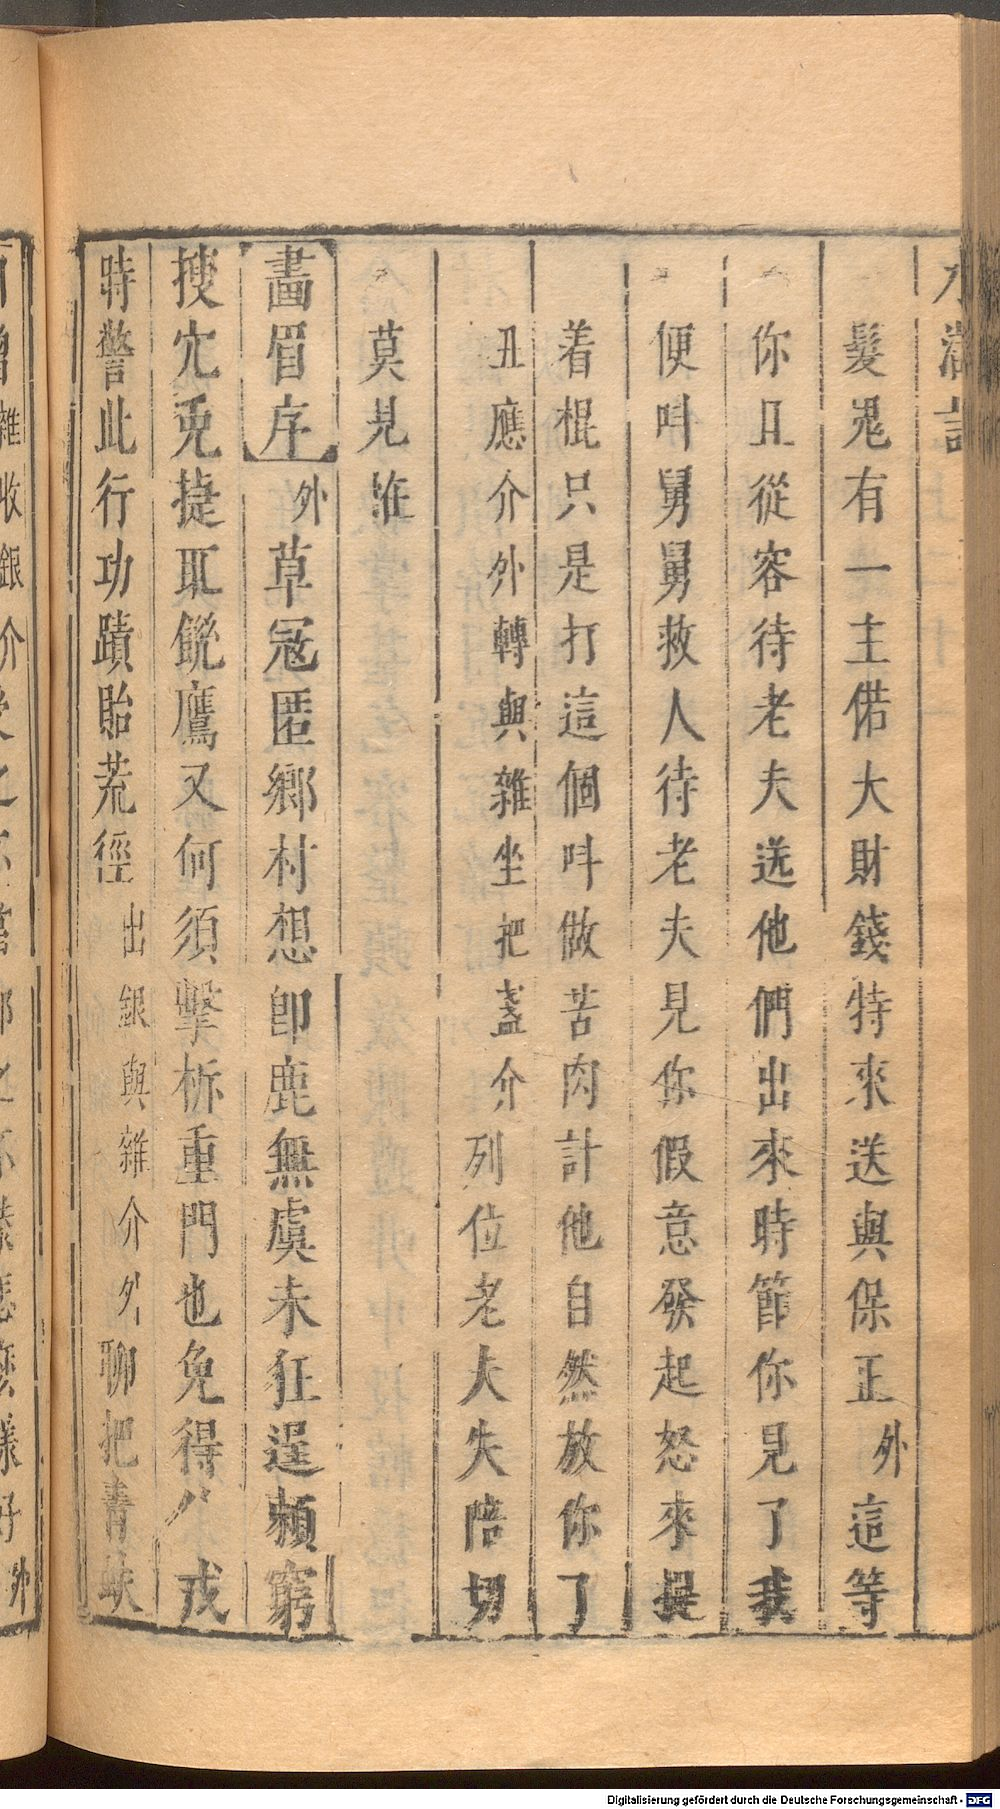 水滸記
髮鬼有一主偌大財錢特來送與保正外這等
你且從容待老夫送他們出來時節你見了我
便呌舅舅救人待老夫見你假意發起怒來提
着棍只是打這個呌做苦肉計他自然放你了
丑應介外轉與雜坐把盞介列位老夫失陪切
莫見恠
畫眉序外草冠匿鄉村想卽鹿無虞未狂逞頼窮
搜穴兎捷取饞鷹又何須擊柝重門也免得戍
時警此行功蹟貽荒徑出銀與雜介外聊把青蚨
雜收銀介
外
Digitalisierung gefördert durch die Deutsche Forschungsgemeinschaft - DFG